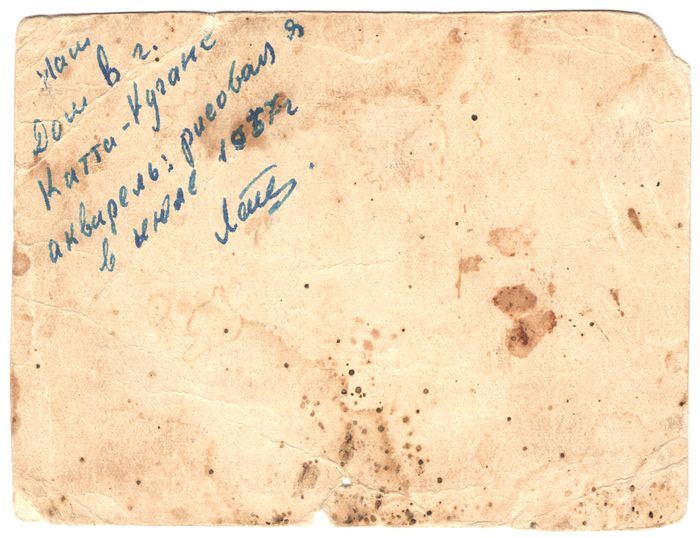 Наш
Дом в г.
Катта-Кургане
акварель: рисовал я
в июле 1957г